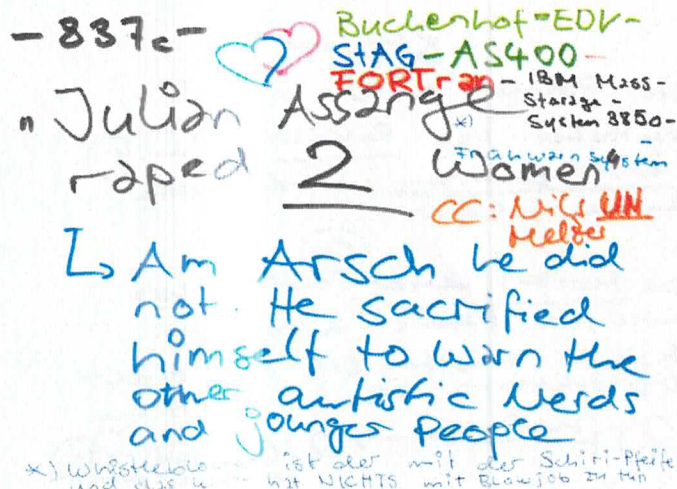 - 837c -
Buchenhof-EDV-
StAG - AS400 -
FORTran - IBM Mass-
Storage -
System 3850 -
"Julian Assange *)
Frühwarnsystem
raped 2 Women"
CC: Nils UN
Melzer
↳ Am Arsch he did
not. He sacrified
himself to warn the
other autistic Nerds
and younger People
*) ist der mit der Schiri-Pfeife
und das hat NICHTS mit Blowjob zu tun